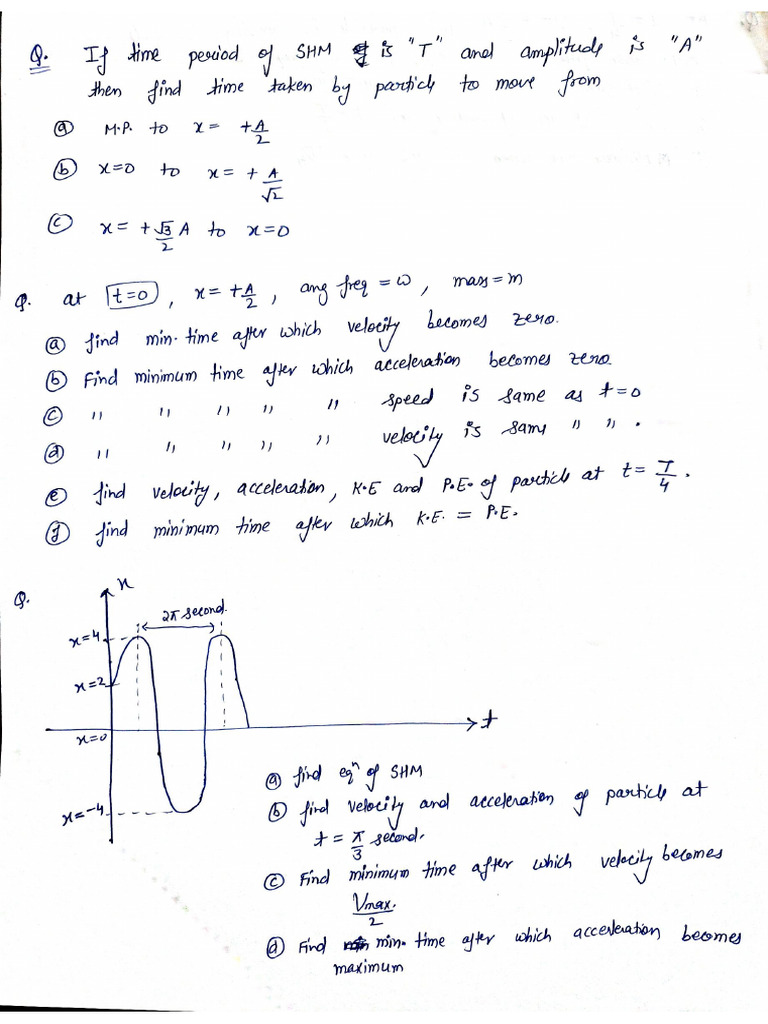 Q. If time period of SHM is "T" and amplitude is "A"
then find time taken by particle to move from
(a) M.P. to x = +A/2
(b) x=0 to x = + A/√2
(c) x = + √3/2 A to x=0
Q. at t=0, x = +A/2, ang freq = ω, mass = m
(a) find min. time after which velocity becomes zero.
(b) Find minimum time after which acceleration becomes zero.
(c) " " " " " speed is same as t=0
(d) " " " " " velocity is same " " .
(e) find velocity, acceleration, K.E and P.E. of particle at t = T/4.
(f) find minimum time after which K.E. = P.E.
Q.
x
2π second.
x=4
x=2
x=0
t
x=-4
(a) find eqn of SHM
(b) find velocity and acceleration of particle at
t = π/3 second.
(c) Find minimum time after which velocity becomes
Vmax./2
(d) Find min. time after which acceleration becomes
maximum